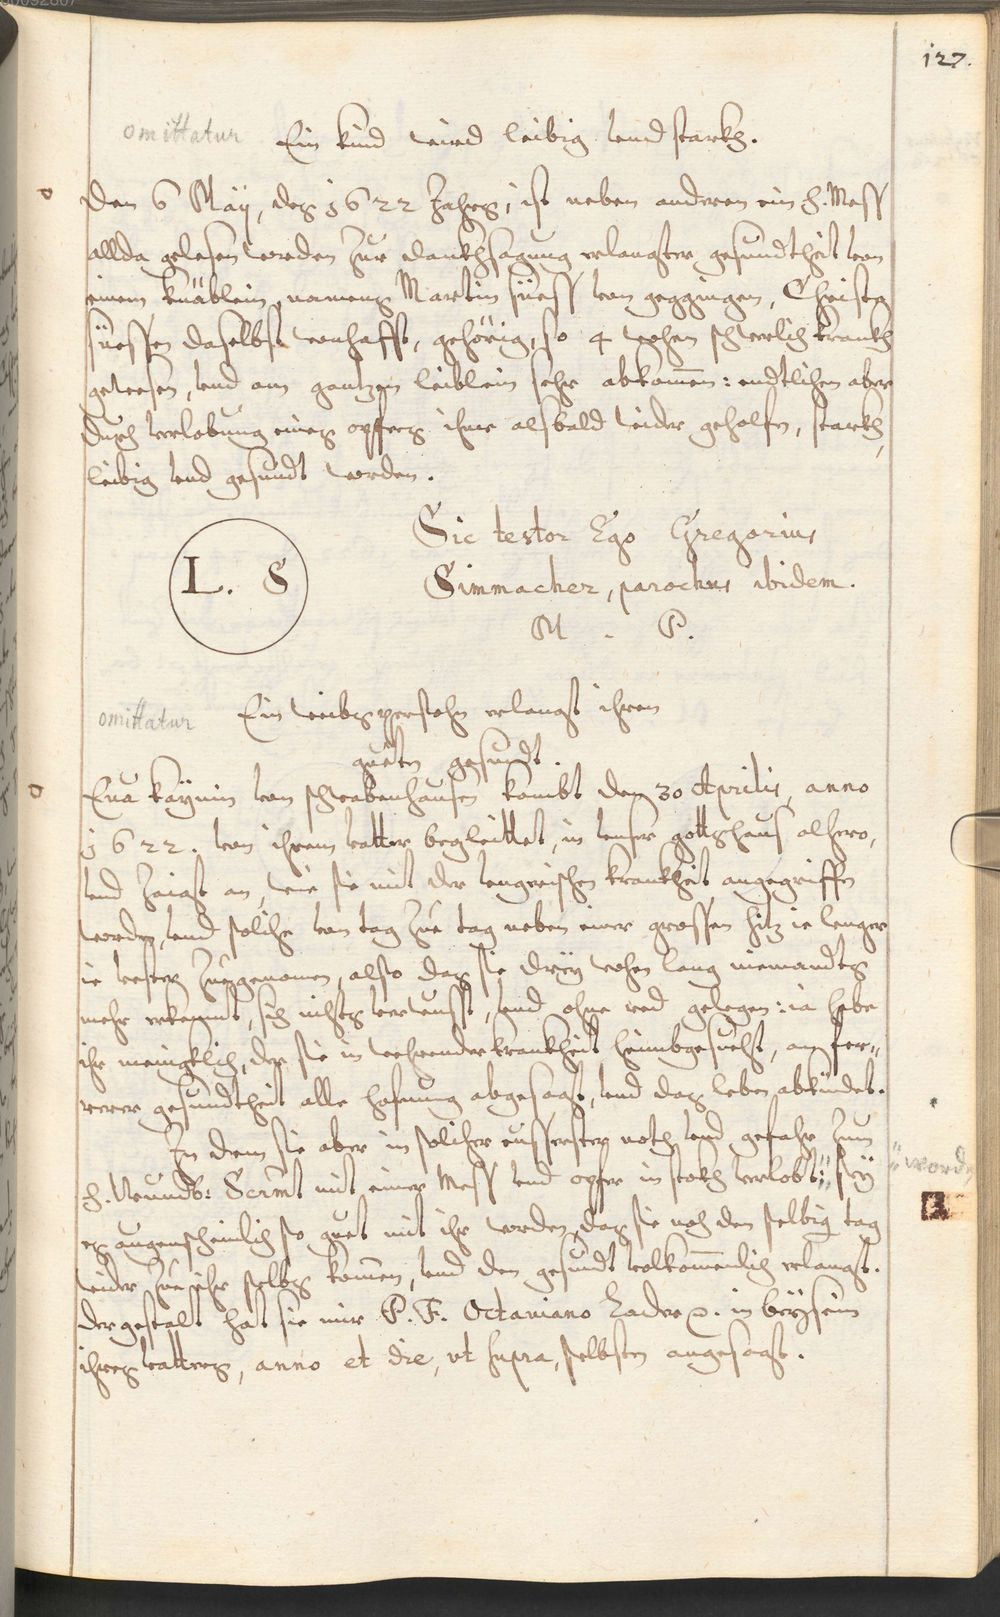 127.
omittatur Ein kind wird leibig vnd starkh.
Den 6 Maÿ, des 1622 Jahrs, ist neben anderen ein H. Mess
allda gelesen worden zur danckhsagung erlangter gesundtheit von
einem knäblein, namens Martin süess von geggingen, Christa
süessen daselbst wohafft, gehörig, so 4 wochen schwerlich kranckh
gewesen, vnd am gantzen leiblein sehr abkomen: endtlichen aber
durch verlobung eines opffers ihme alsbald wider geholfen, starkh,
leibig vnd gesundt worden.
L. S
Sic testor Ego Gregorius
Simmacher, parochus ibidem.
M . P.
omittatur Ein weibspersohn erlangt ihren
guetn gesundt.
Eua kaÿmin von schwabenhausen kombt den 30 Aprilis, anno
1622. von ihrem vatter begleittet, in vnser gottshaus alhero,
vnd zaigt an, wie sie mit der vngerischen krankheit angegriffn
worden, vnd solche von tag zue tag neben einer grossen hitz ie lenger
ie vester zuegenomen, also das sie dreÿ wochen lang niemandts
mehr erkennt, sich nichts verwusst, vnd ohne red gelegen: ia habe
ihr meingklich, der sie in wehrender krankheit heimbgesucht, an fer„
rerer gesundtheit alle hofnung abgesagt, vnd das leben abkündet.
In dem sie aber in solcher eusserster noth vnd gefahr zum
H. Wundb: Scrmt mit einer Mess vnd opfer in stokh verlobt: „ seÿ
„ worden
es augenscheinlich so guet mit ihr worden, das sie noch den selbig tag
wider zue ihr selbs komen, vnd den gesundt volkomenlich erlangt.
Dergestalt hat sie mir P. F. Octauiano Lader p. in beÿsein
ihres vatters, anno et die, vt supra, selbsten angesagt.